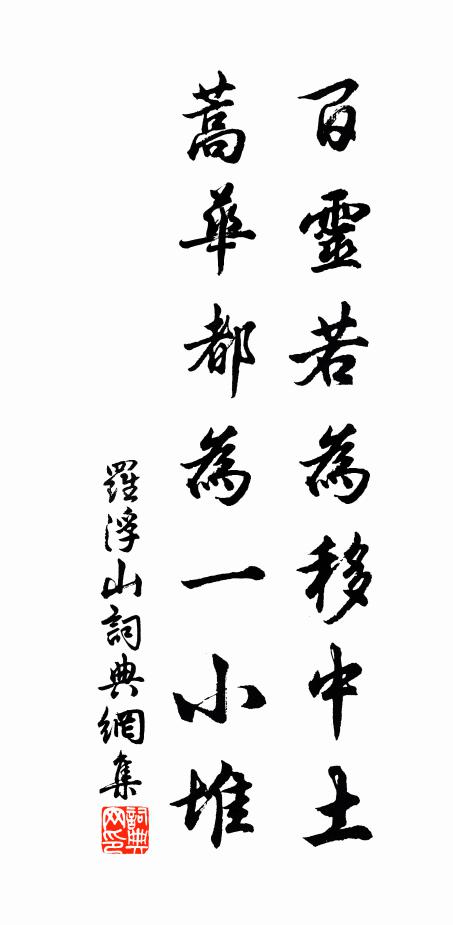 百靈若為移中土
蒿華都為一小堆
羅浮山詞典網集
詞典
网印